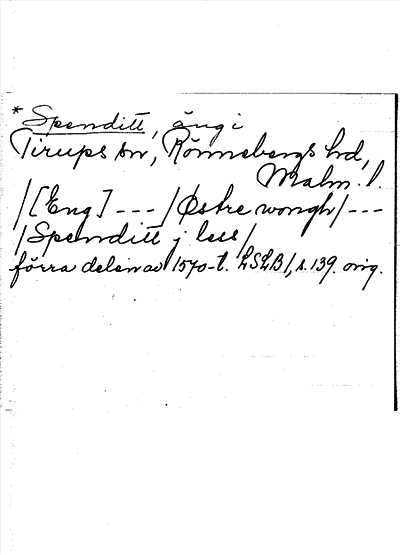 * Spenditt, äng i
Tirups sn, Rönnebergs hd,
Malm. l.
/[Eng] --- /Østre wongh/ ---
/Spenditt j less/
förra delen av 1570-t. LSLB1, s. 139. orig.